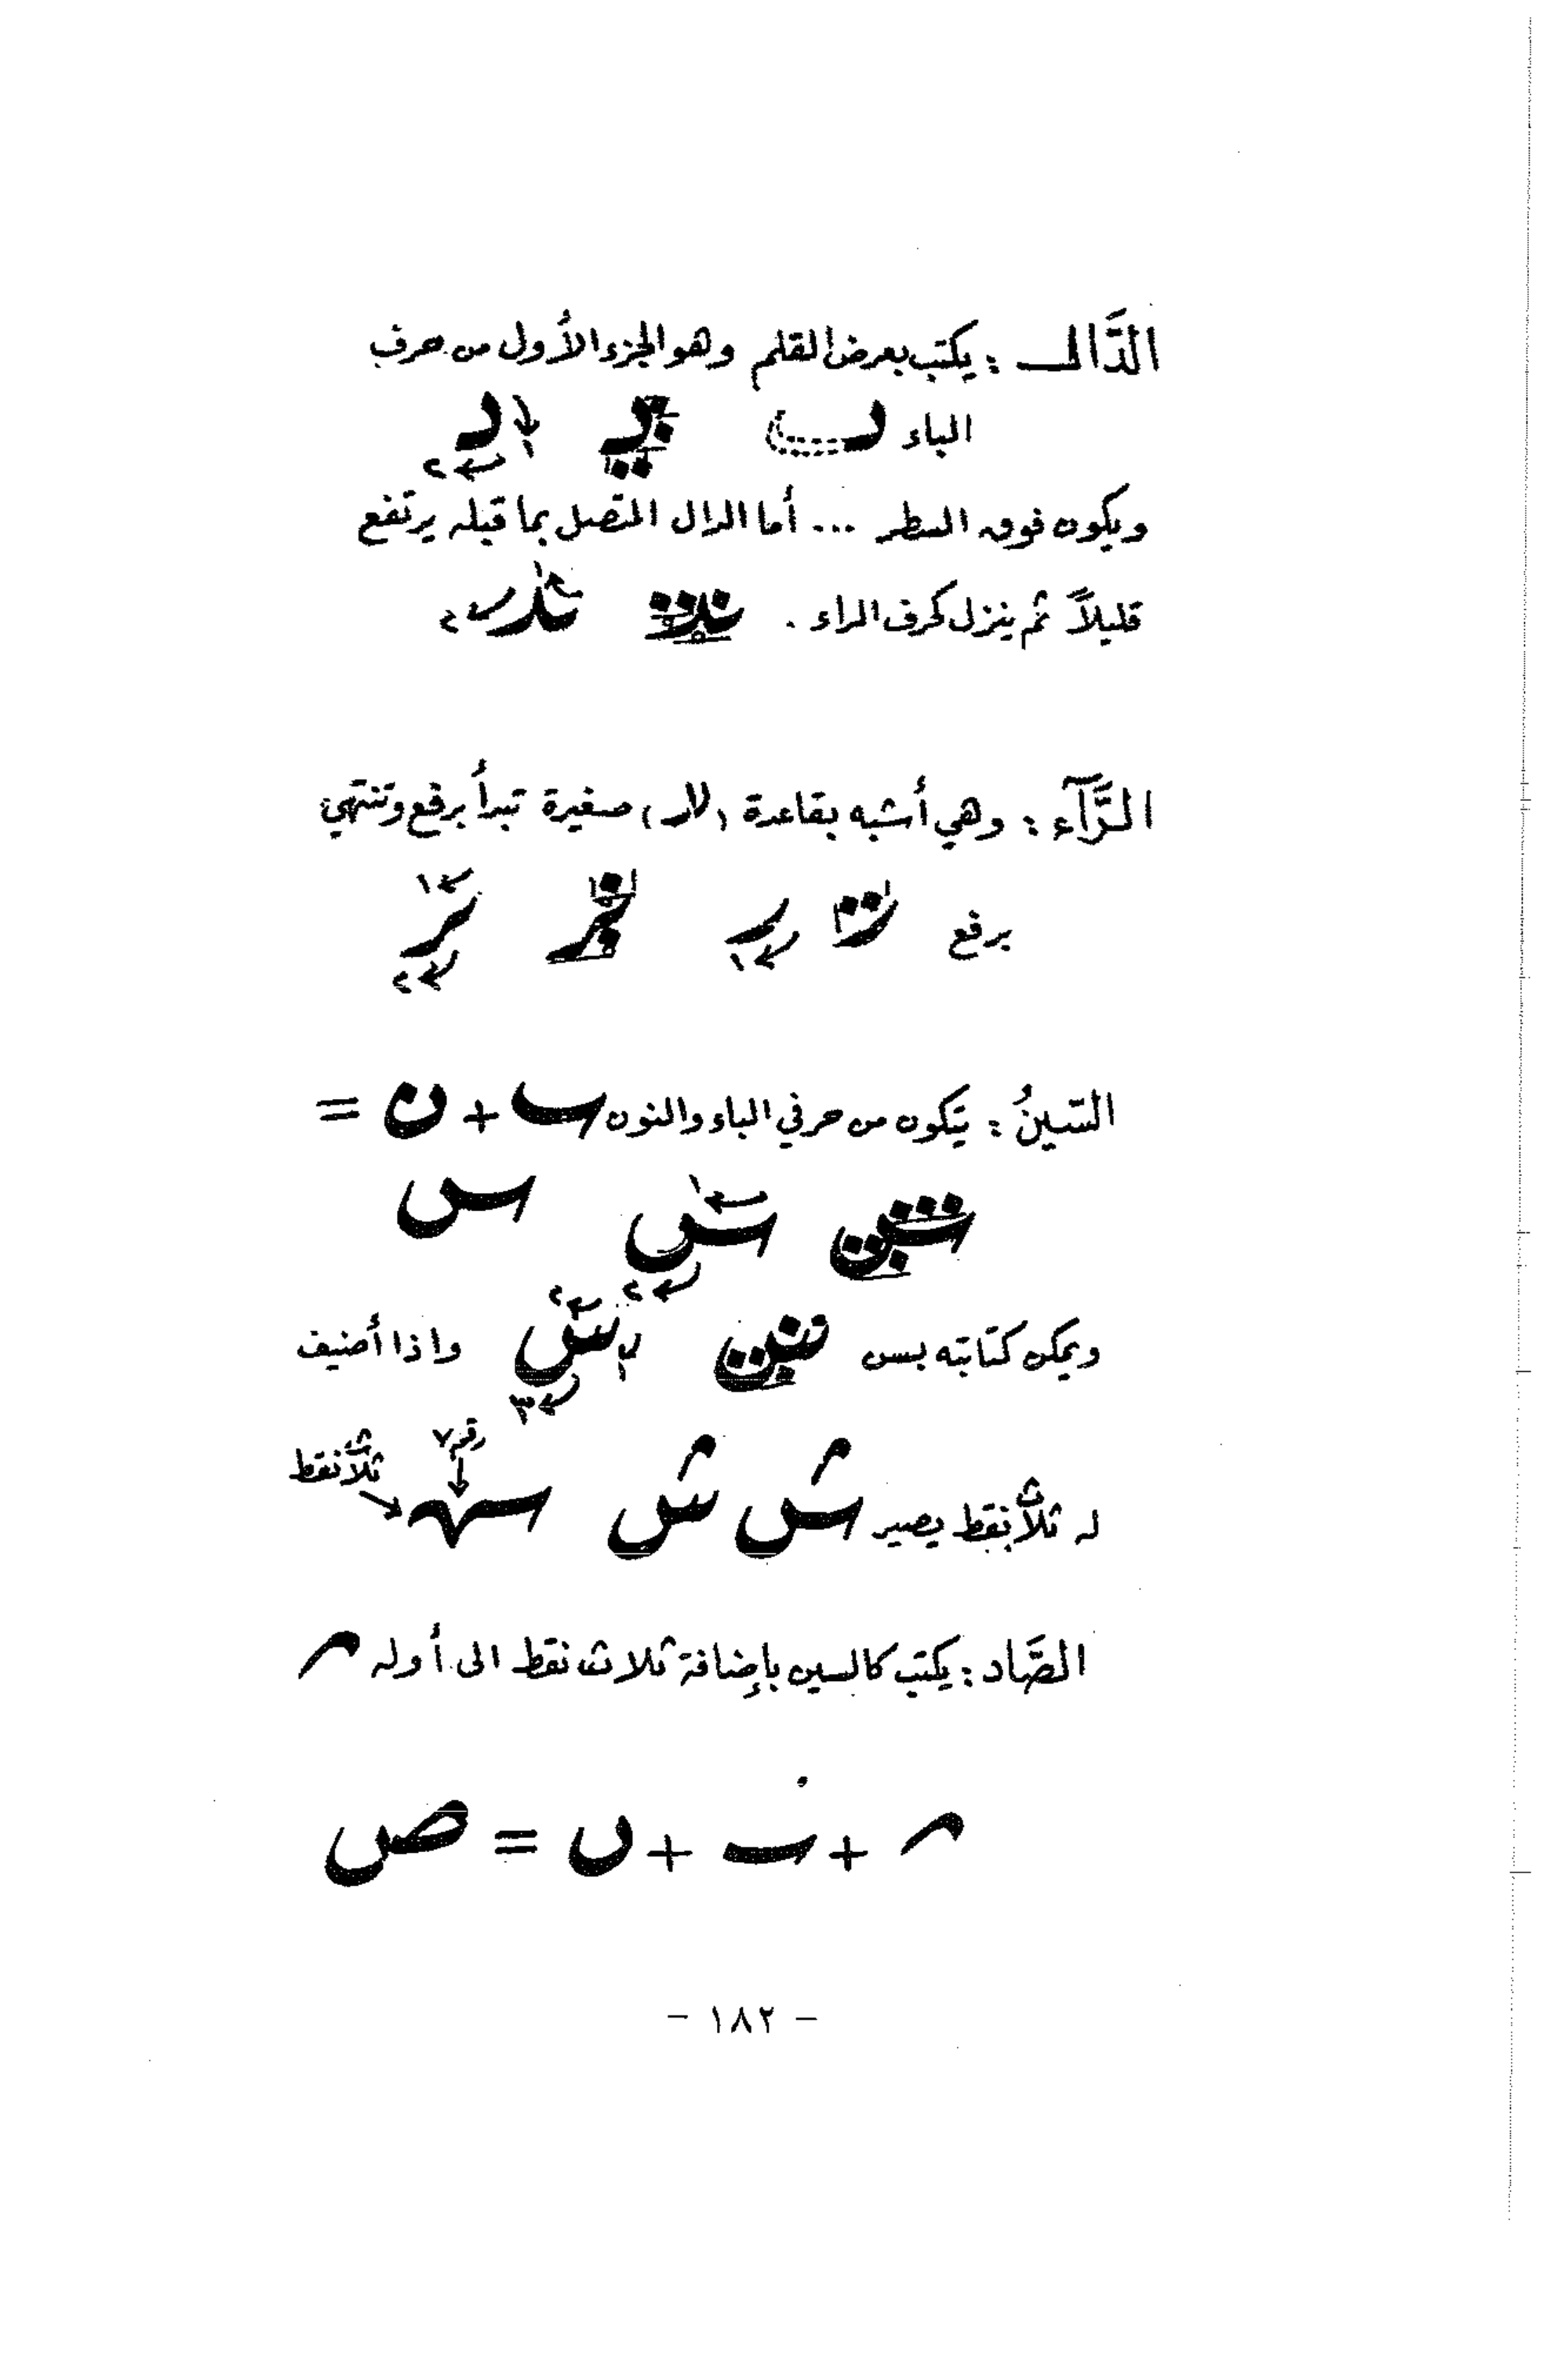 الدَّال : يكتب بعرض القلم وهو الجزء الأول من حرف
الباء
١ ٢
ويكون فوق السطر ... أما الدال المتصل بما قبله يرتفع
قليلاً ثم ينزل كحرف الراء .
١ ٢
الرَّآء : وهي أشبه بقاعدة (لار) صغيرة تبدأ برفع وتنتهي
برفع
١ ١ ٢
السّينُ : يتكون من حرفي الباء والنون ب + ن =
س
١ ٢
ويمكن كتابته بسن واذا أضيف
١ ٢ ٣
رقم ٧ ثلاث نقط
له ثلاث نقط يصير ش ش
الصَّاد : يكتب كالسين بإضافة ثلاث نقط الى أوله
+ + ں = ص
- ١٨٢ -